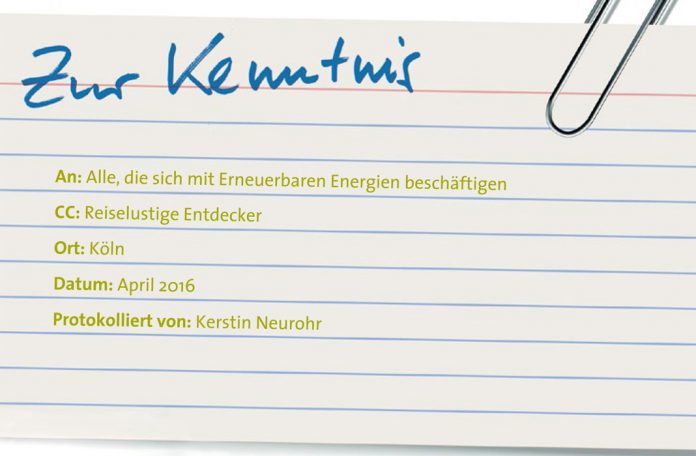 Zur Kenntnis
An: Alle, die sich mit Erneuerbaren Energien beschäftigen
CC: Reiselustige Entdecker
Ort: Köln
Datum: April 2016
Protokolliert von: Kerstin Neurohr